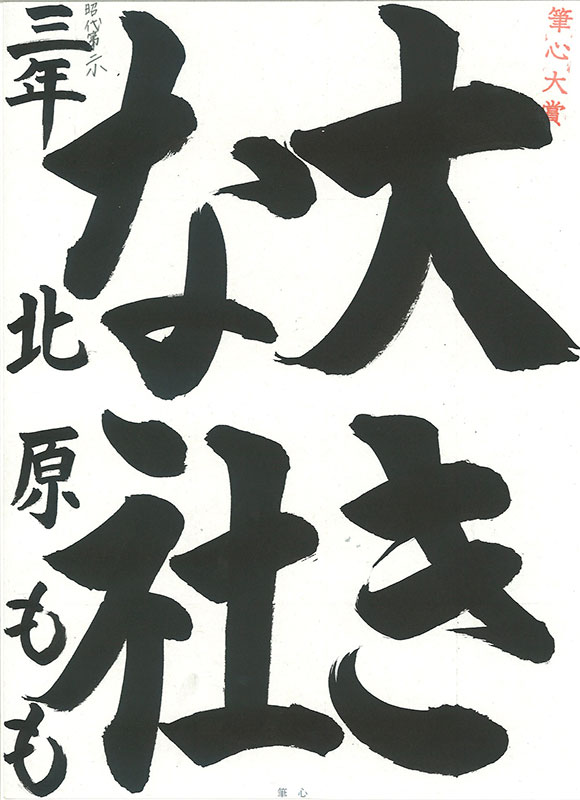 筆心大賞
大き
な社
昭代第二小
三年 北原もも
筆心